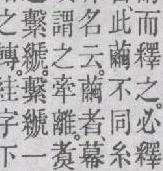 而釋之。必釋
此繭不同糸
名云。繭者。幕
謂之牽離。煑
繫𦃇。繫𦃇一
之轉。絓字下